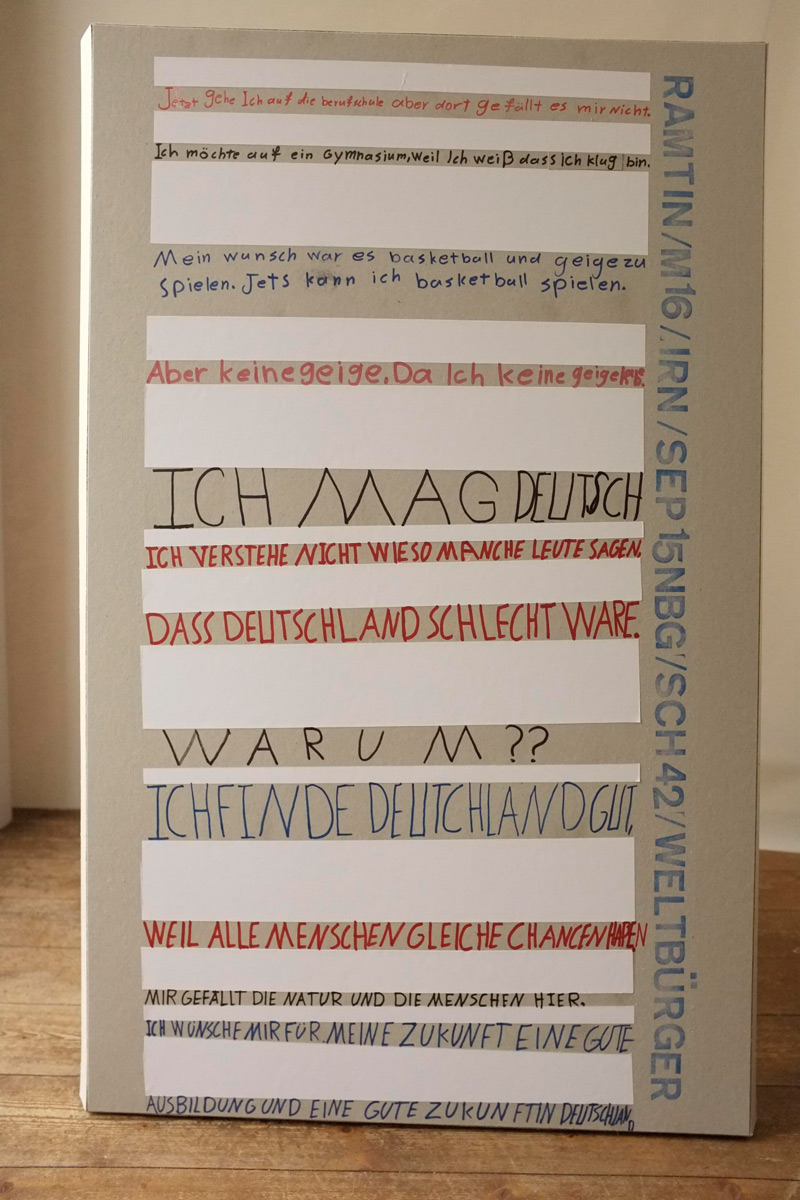 Jetzt gehe Ich auf die berufschule aber dort gefällt es mir Nicht.
Ich möchte auf ein Gymnasium, Weil Ich weiß dass ich klug bin.
Mein wunsch war es basketball und geige zu
spielen. Jets kann ich basketball spielen.
Aber keine geige. Da Ich keine geige
ICH MAG DEUTSCH
ICH VERSTEHE NICHT WIESO MANCHE LEUTE SAGEN,
DASS DEUTSCHLAND SCHLECHT WARE.
WARUM??
ICH FINDE DEUTCHLAND GUT,
WEIL ALLE MENSCHEN GLEICHE CHANCEN HAPEN
MIR GEFÄLLT DIE NATUR UND DIE MENSCHEN HIER.
ICH WÜNSCHE MIR FÜR MEINE ZUKUNFT EINE GUTE
AUSBILDUNG UND EINE GUTE ZUKUNFT IN DEUTSCHLAND
RAMTIN/M16/IRN/SEP15NBG/SCH42/WELTBÜRGER